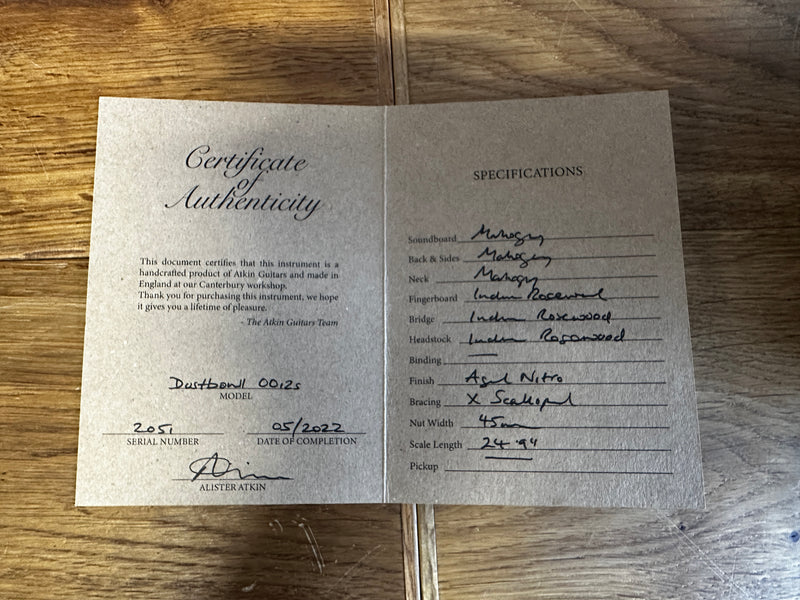 Certificate
of
Authenticity
This document certifies that this instrument is a
handcrafted product of Atkin Guitars and made in
England at our Canterbury workshop.
Thank you for purchasing this instrument, we hope
it gives you a lifetime of pleasure.
- The Atkin Guitars Team
Dustbowl 0012s
MODEL
2051 05/2022
SERIAL NUMBER DATE OF COMPLETION
ALISTER ATKIN
SPECIFICATIONS
Soundboard Mahogany
Back & Sides Mahogany
Neck Mahogany
Fingerboard Indian Rosewood
Bridge Indian Rosewood
Headstock Indian Rosewood
Binding
Finish Aged Nitro
Bracing X Scalloped
Nut Width 45mm
Scale Length 24.94
Pickup